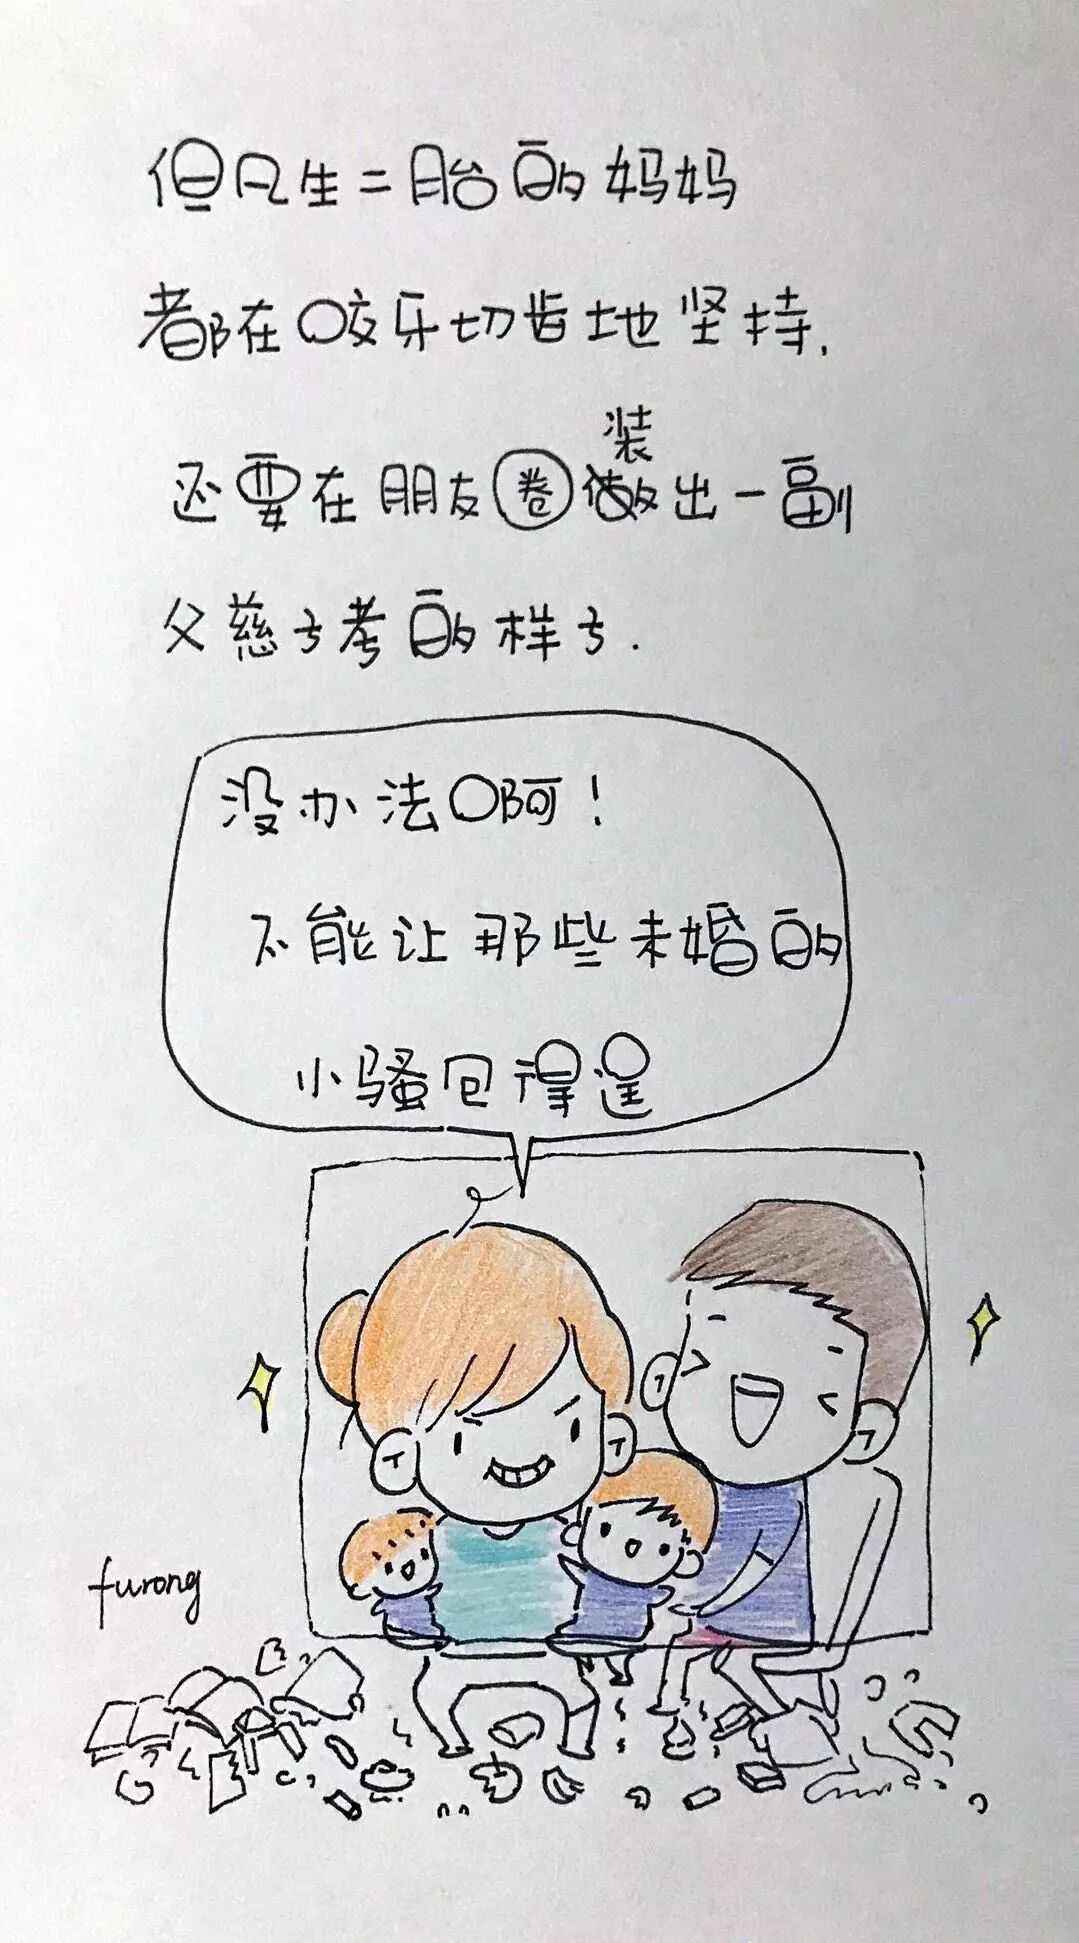 但凡生二胎的妈妈
都在咬牙切齿地坚持.
装
还要在朋友圈做出一副
父慈子孝的样子.
没办法啊!
不能让那些未婚的
小骚包得逞
furong